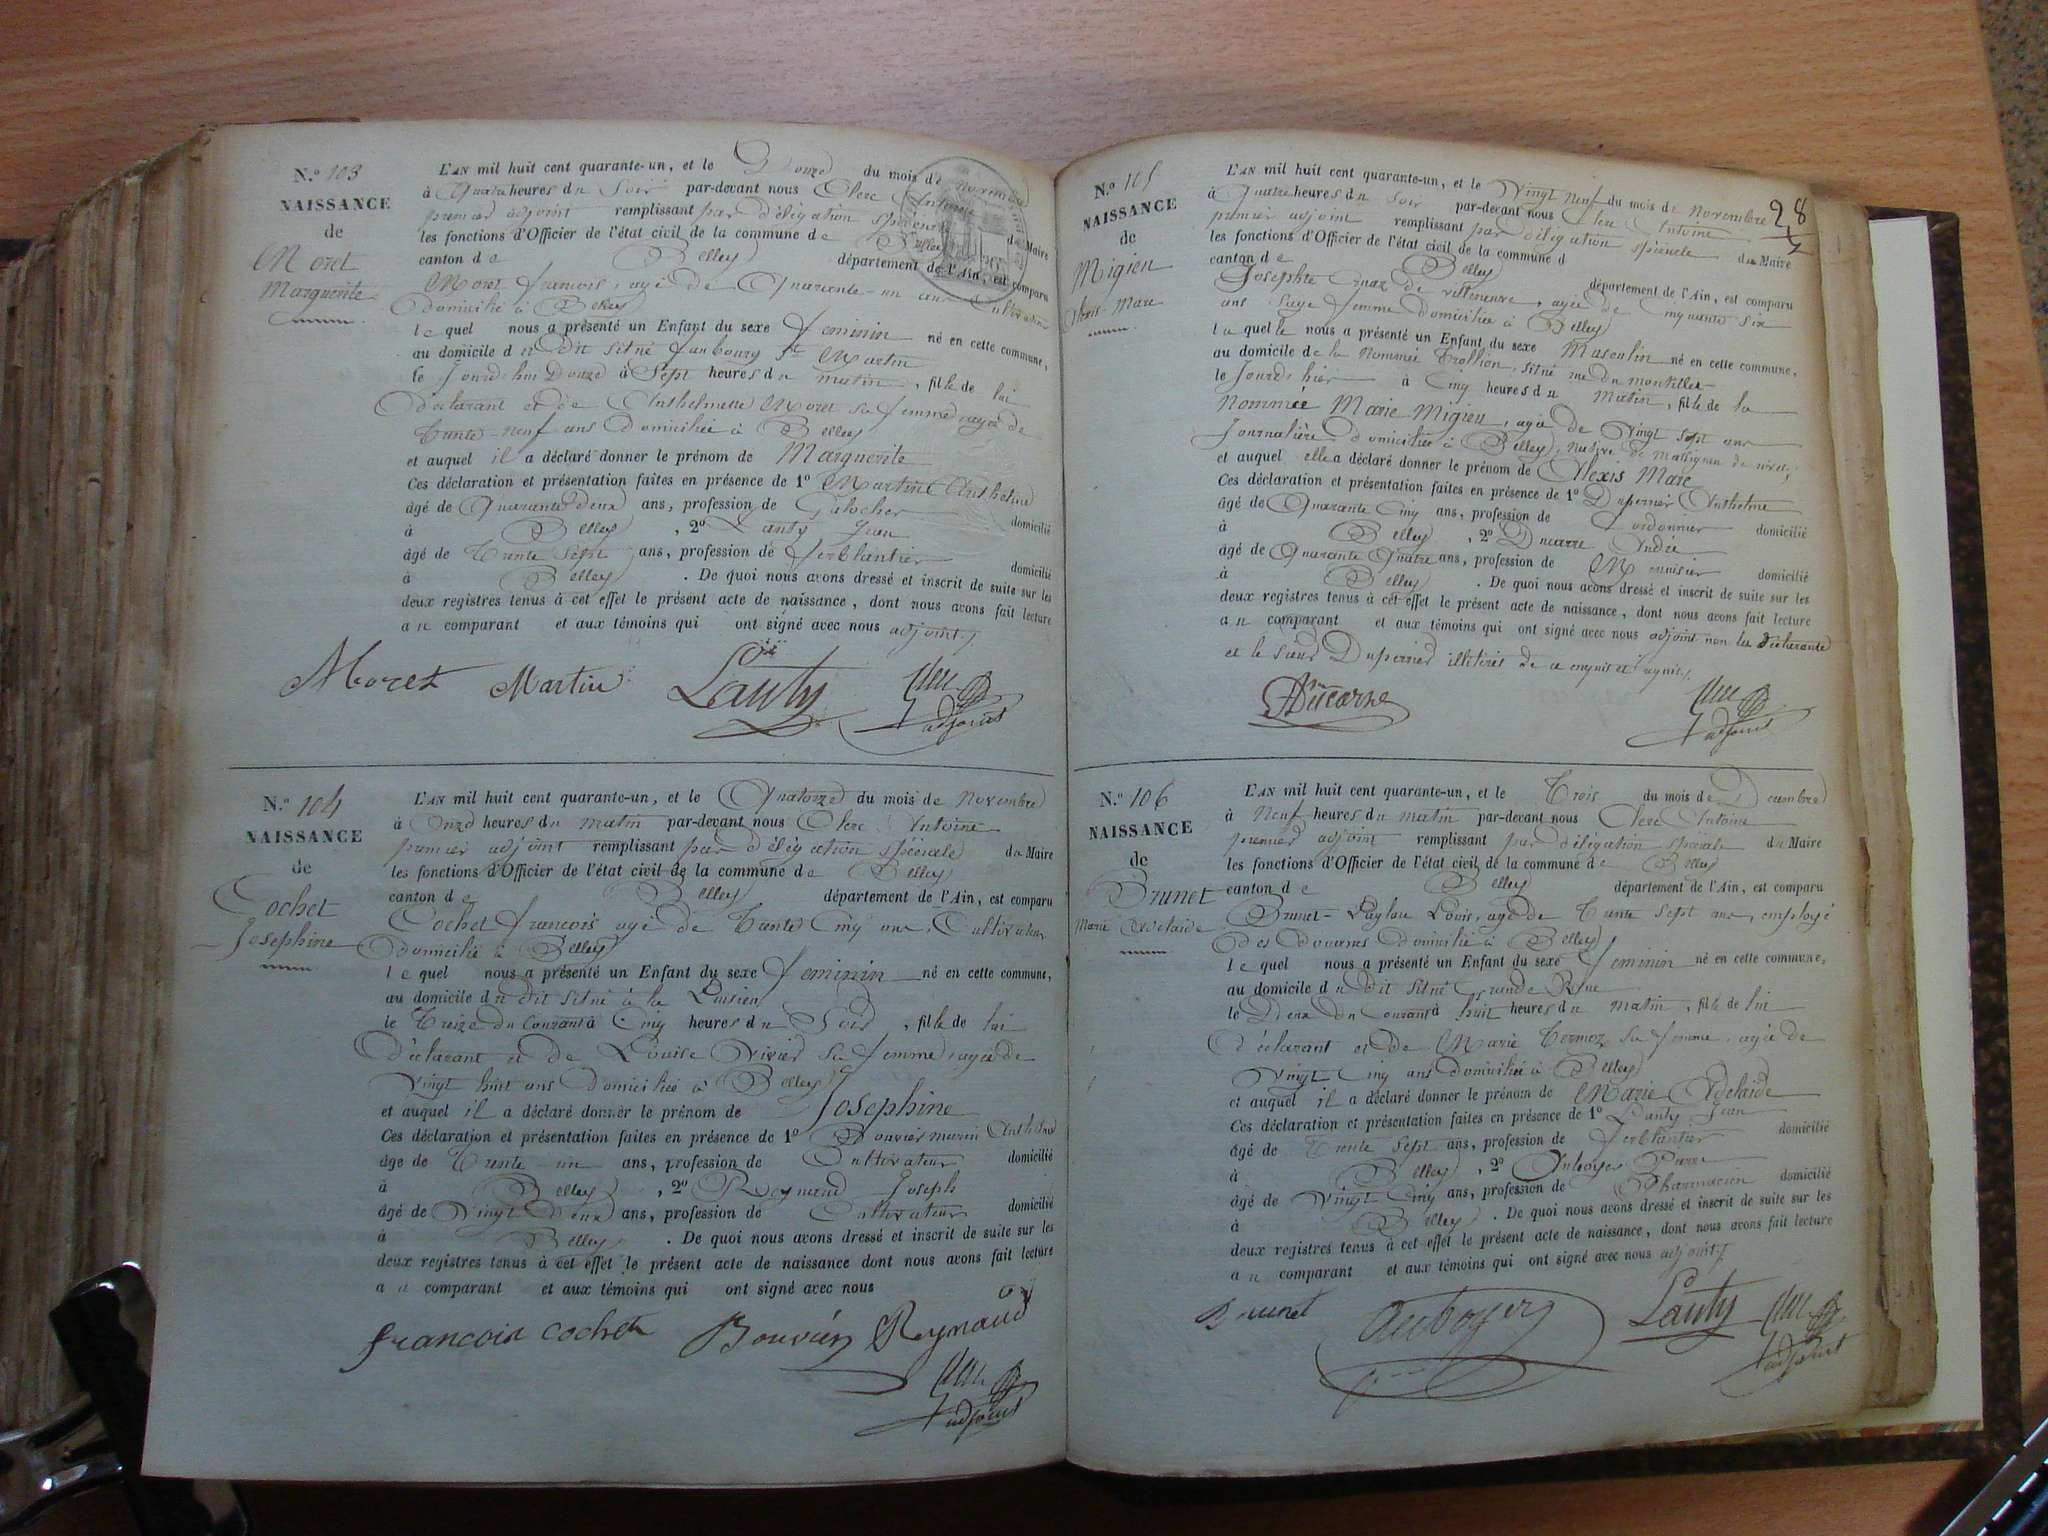 N.º 103
NAISSANCE
de
Moret
Marguerite
L'AN mil huit cent quarante-un, et le Douze du mois de Novembre
à Quatre heures du Soir par-devant nous Clerc Antoine
premier adjoint remplissant par délégation spéciale du Maire
les fonctions d'Officier de l'état civil de la commune de Belley
canton de Belley département de l'Ain, est comparu
Moret françois, agé de Quarante-un ans Cultivateur
Domicilié à Belley
lequel nous a présenté un Enfant du sexe feminin né en cette commune,
au domicile du dit situé faubourg St Martin
le Jourdhui Douze à Sept heures du matin, fille de lui
Déclarant et de Anthelmette Moret sa femme agée de
Trente-neuf ans Domiciliée à Belley
et auquel il a déclaré donner le prénom de Marguerite
Ces déclaration et présentation faites en présence de 1º Martin Anthelme
âgé de Quarante Deux ans, profession de Galocher domicilié
à Belley, 2º Lauty Jean
âgé de Trente Sept ans, profession de ferblantier domicilié
à Belley. De quoi nous avons dressé et inscrit de suite sur les
deux registres tenus à cet effet le présent acte de naissance, dont nous avons fait lecture
au comparant et aux témoins qui ont signé avec nous adjoint
Moret Martin Lauty Clerc
adjoint
N.º 104
NAISSANCE
de
Cochet
Josephine
L'AN mil huit cent quarante-un, et le Quatorze du mois de Novembre
à Onze heures du matin par-devant nous Clerc Antoine
premier adjoint remplissant par délégation spéciale du Maire
les fonctions d'Officier de l'état civil de la commune de Belley
canton de Belley département de l'Ain, est comparu
Cochet françois agé de Trente Cinq ans, Cultivateur
Domicilié à Belley
lequel nous a présenté un Enfant du sexe feminin né en cette commune,
au domicile du dit situé à la
le Treize du Courant à Cinq heures du Soir, fille de lui
Déclarant et de Louise Vivier sa femme, agée de
Vingt huit ans Domiciliée à Belley
et auquel il a déclaré donner le prénom de Josephine
Ces déclaration et présentation faites en présence de 1º Bouvier marin Anthelme
âgé de Trente un ans, profession de Cultivateur domicilié
à Belley, 2º Reynaud Joseph
âgé de Vingt Deux ans, profession de Cultivateur domicilié
à Belley. De quoi nous avons dressé et inscrit de suite sur les
deux registres tenus à cet effet le présent acte de naissance dont nous avons fait lecture
au comparant et aux témoins qui ont signé avec nous
francois cochet Bouvier Reynaud
Clerc
adjoint
28
N.º 105
NAISSANCE
de
Migieu
Alexis Marc
L'AN mil huit cent quarante-un, et le Vingt Neuf du mois de Novembre
à Quatre heures du Soir par-devant nous Clerc Antoine
premier adjoint remplissant par délégation spéciale du Maire
les fonctions d'Officier de l'état civil de la commune d
canton de Belley département de l'Ain, est comparu
Josephte de villeneuve, agée de Cinquante six
ans Sage femme domiciliée à Belley
laquelle nous a présenté un Enfant du sexe Masculin né en cette commune,
au domicile de la Nommée Trollion, situé rue du
le Jourd. hier à Cinq heures du Matin, fils de la
Nommée Marie Migieu, agée de Vingt Sept ans
Journalière, domiciliée à Belley, Native de
et auquel elle a déclaré donner le prénom de Alexis Marc
Ces déclaration et présentation faites en présence de 1º Dupernier Anthelme
âgé de Quarante Cinq ans, profession de Cordonnier domicilié
à Belley, 2º Ducarre André
âgé de Quarante Quatre ans, profession de Menuisier domicilié
à Belley. De quoi nous avons dressé et inscrit de suite sur les
deux registres tenus à cet effet le présent acte de naissance, dont nous avons fait lecture
au comparant et aux témoins qui ont signé avec nous adjoint non la déclarante
et le Sieur Dupernier illitérés de ce enquis et requis.
Ducarre Clerc
adjoint
N.º 106
NAISSANCE
de
Brunet
Marie Adelaide
L'AN mil huit cent quarante-un, et le Trois du mois de Decembre
à Neuf heures du matin par-devant nous Clerc Antoine
premier adjoint remplissant par délégation spéciale du Maire
les fonctions d'Officier de l'état civil de la commune de Belley
canton de Belley département de l'Ain, est comparu
Brunet- Louis, agé de Trente Sept ans, employé
des Douanes Domicilié à Belley
lequel nous a présenté un Enfant du sexe feminin né en cette commune,
au domicile du dit situé Grande Rue
le Deux du Courant à huit heures du Matin, fille de lui
déclarant et de Marie Termoz sa femme, agée de
Vingt Cinq ans Domiciliée à Belley
et auquel il a déclaré donner le prénom de Marie Adelaide
Ces déclaration et présentation faites en présence de 1º Lauty Jean
âgé de Trente Sept ans, profession de ferblantier domicilié
à Belley, 2º Auboyer Pierre
âgé de Vingt Cinq ans, profession de Pharmacien domicilié
à Belley. De quoi nous avons dressé et inscrit de suite sur les
deux registres tenus à cet effet le présent acte de naissance, dont nous avons fait lecture
au comparant et aux témoins qui ont signé avec nous adjoint
Brunet Auboyer Lauty Clerc
adjoint